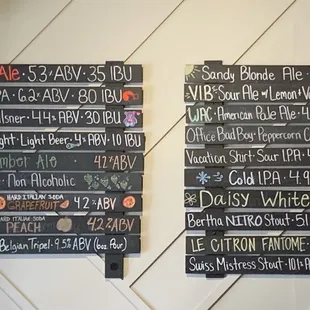 Ale · 5.3% ABV · 35 IBU
PA · 6.2% ABV · 80 IBU
ilsner · 4.4% ABV · 30 IBU
ght · Light Beer · 4% ABV · 10 IBU
mber Ale 4.2% ABV
· Non Alcoholic
HARD ITALIAN SODA GRAPEFRUIT 4.2% ABV
HARD ITALIAN SODA PEACH 4.2% ABV
Belgian Tripel · 9.5% ABV (6oz Pour)
Sandy Blonde Ale ·
VIB · Sour Ale w/ Lemon +
WAC · American Pale Ale · 4
Office Bad Boy · Peppercorn
Vacation Shirt · Sour I.P.A. · 4
Cold I.P.A. · 4.9
Daisy White
Bertha NITRO Stout · 5
LE CITRON FANTOME
Suiss Mistress Stout · 10.1% A